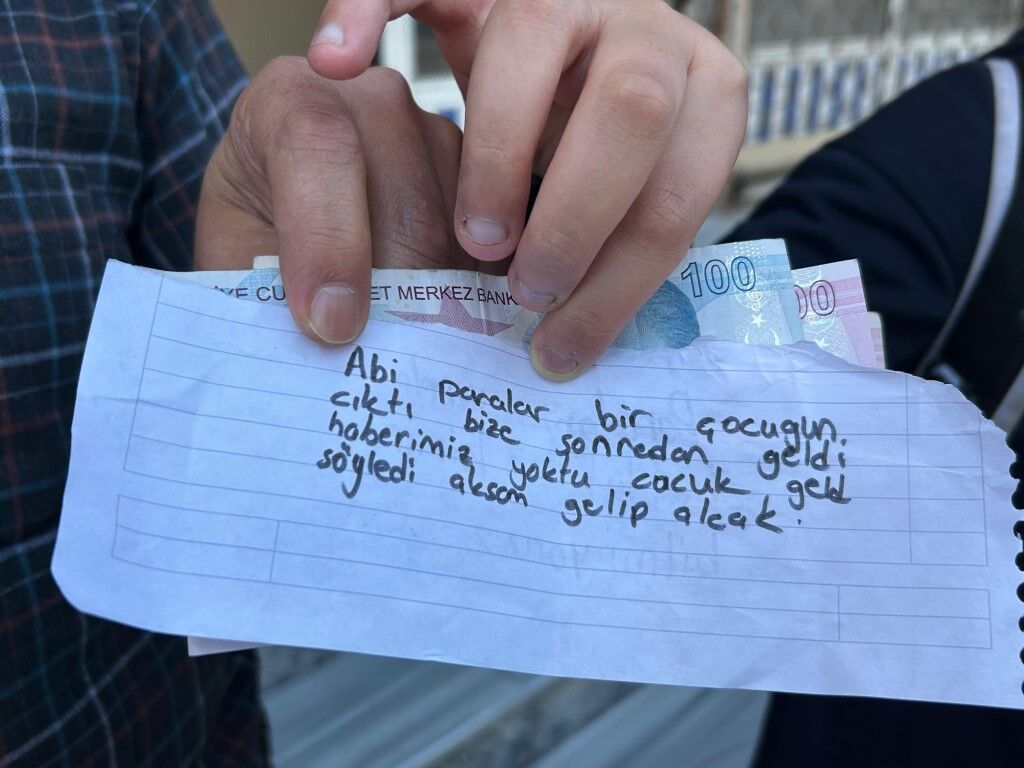 İYE CU ET MERKEZ BANK
100
00
Abi paralar bir çocugun.
cıktı bize sonredan geldi
haberimiz yoktu cocuk geld
söyledi aksam gelip alcak.